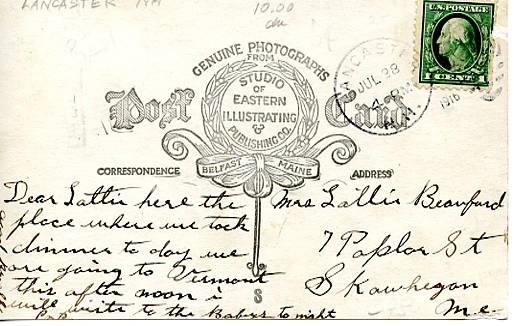 LANCASTER NH
10.00
GENUINE PHOTOGRAPHS
FROM
STUDIO
OF
EASTERN
ILLUSTRATING
&
PUBLISHING CO.
BELFAST MAINE
Post Card
CORRESPONDENCE
ADDRESS
U.S. POSTAGE
1 CENT 1
LANCASTER
JUL 28
4 PM
1916
N.H.
Dear Lattie here the
place where we took
dinner to day we
are going to Vermont
this after noon i
will write to the Babys to night
Mrs Lattie Beauford
7 Poplar St
Skowhegan
Me.
S